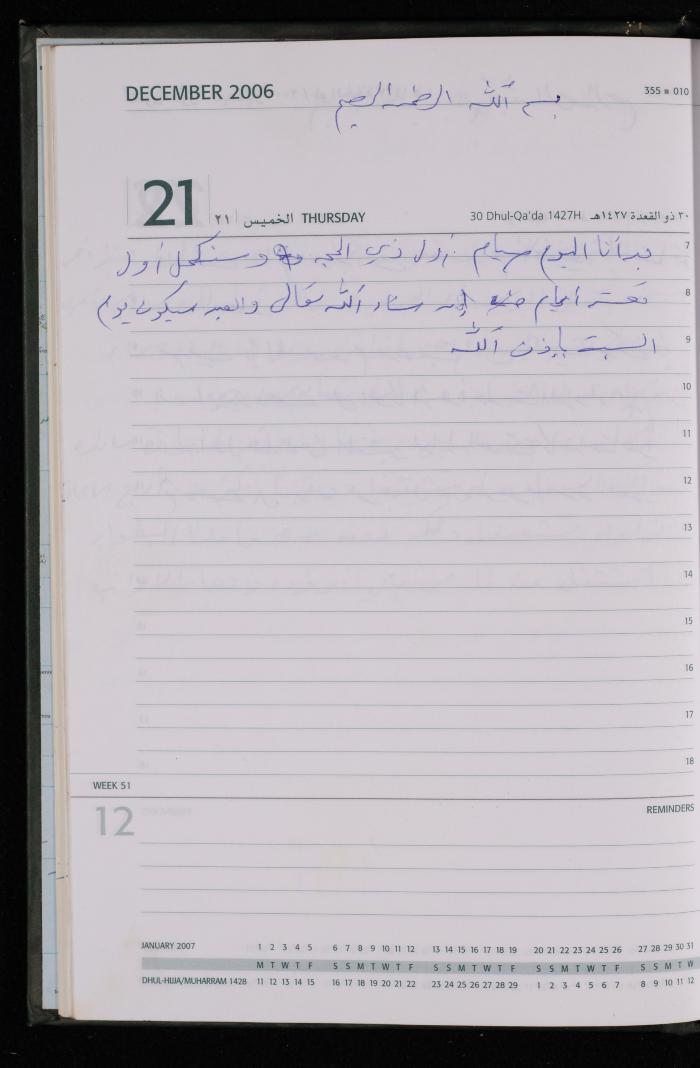 DECEMBER 2006
بسم الله الرحمن الرحيم
355 ■ 010
21
٢١ الخميس THURSDAY
30 Dhul-Qa'da 1427H ٣٠ ذو القعدة ١٤٢٧هـ
بدأنا اليوم صيام أول ذي الحجه وسنكمل أول
7
عشر أيام إن شاء الله تعالى والعيد سيكون يوم
8
السبت بإذن الله
9
10
11
12
13
14
15
16
17
18
WEEK 51
12
REMINDERS
JANUARY 2007 1 2 3 4 5 6 7 8 9 10 11 12 13 14 15 16 17 18 19 20 21 22 23 24 25 26 27 28 29 30 31
M T W T F S S M T W T F S S M T W T F S S M T W T F S S M T W
DHUL-HIJJA/MUHARRAM 1428 11 12 13 14 15 16 17 18 19 20 21 22 23 24 25 26 27 28 29 1 2 3 4 5 6 7 8 9 10 11 12